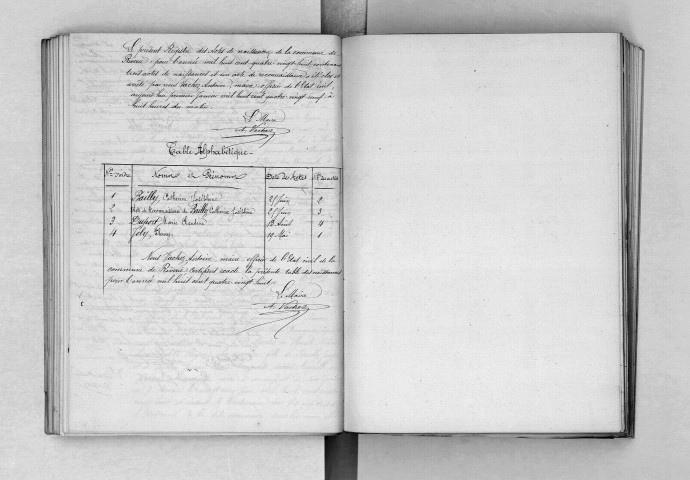 Le présent Registre des actes de naissance de la commune de
Riverie, pour l'année mil huit cent quatre vingt huit, contenant
trois actes de naissances et un acte de reconnaissance, a été clos et
arrêté par nous Vachez Antoine, maire, officier de l'Etat civil,
aujourd'hui premier janvier mil huit cent quatre vingt neuf à
huit heures du matin
Le Maire
A. Vachez
Table Alphabétique
Nos d'ordre Noms et Prénoms Date des Actes Nos des actes
1 Bailly, Catherine Joséphine 25 Juin 2
2 Acte de Reconnaissance de Bailly Catherine Joséphine 25 Juin 3
3 Duport Marie Claudine 13 Août 4
4 Joly, 19 Mai 1
Nous Vachez Antoine, maire officier de l'Etat civil de la
commune de Riverie certifions exacte la présente table des naissances
pour l'année mil huit cent quatre vingt huit
Le Maire
A. Vachez